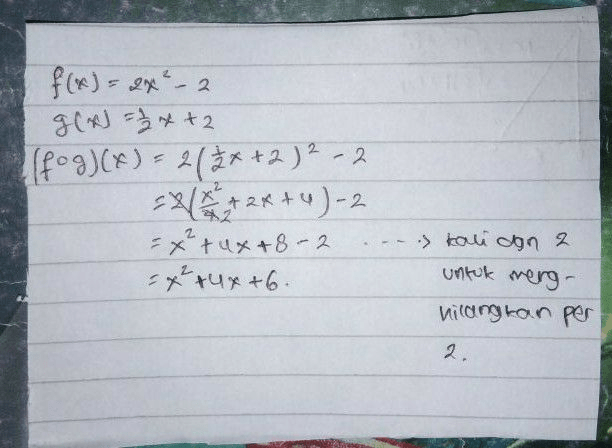 f(x) = 2x² - 2
g(x) = ½x + 2
(fog)(x) = 2(½x + 2)² - 2
= 2(x²/4 2 + 2x + 4) - 2
= x² + 4x + 8 - 2 ....> kali dgn 2
= x² + 4x + 6. untuk meng-
hilangkan per
2.